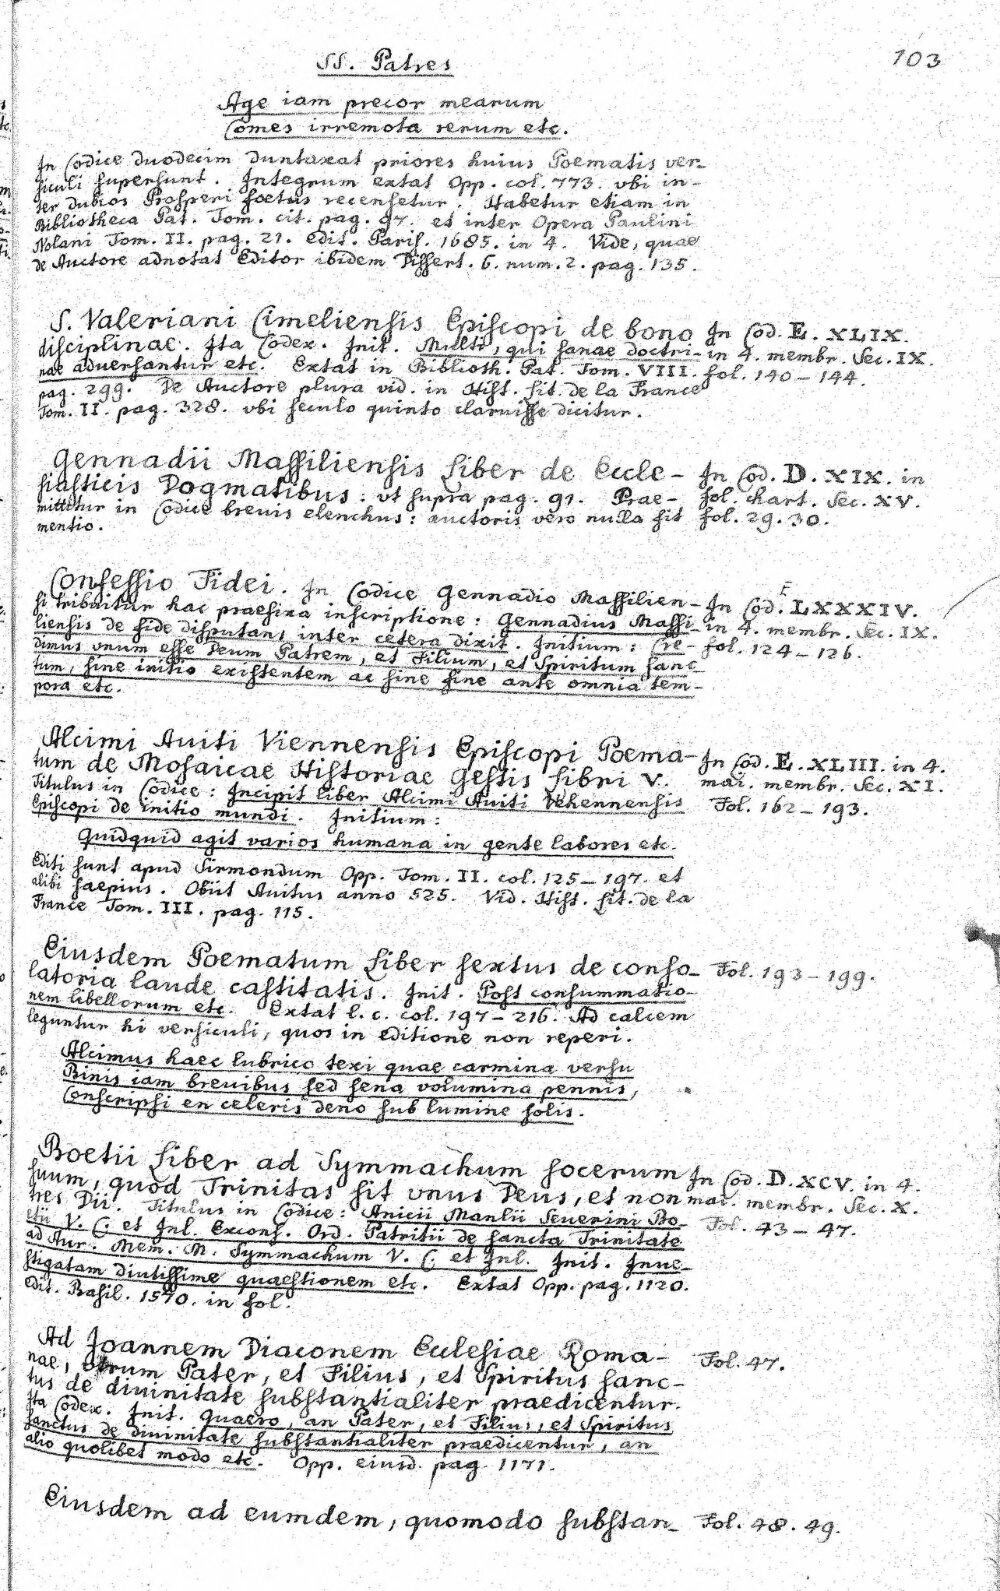 SS. Patres
103
Age iam precor mearum
Comes irremota rerum etc.
In Codice duodecim duntaxat priores huius Poematis ver-
siculi supersunt. Integrum extat Opp. col. 773. vbi in-
ter dubios Prosperi foetus recensetur. Habetur etiam in
Bibliotheca Pat. Tom. cit. pag. 97. et inter Opera Paulini
Nolani Tom. II. pag. 21. Edit. Paris. 1685. in 4. Vide, quae
de Auctore adnotat Editor ibidem Dissert. 6. num. 2. pag. 135.
S. Valeriani Cimeliensis Episcopi de bono
In Cod. E. XLIX.
disciplinae. Ita Codex. Init. Multi, qui sanae doctri-
in 4. membr. Sec. IX.
nae aduersantur etc. Extat in Biblioth. Pat. Tom. VIII.
fol. 140 – 144.
pag. 299. De Auctore plura vid. in Hist. Lit. de la France
Tom. II. pag. 328. vbi seculo quinto claruisse dicitur.
Gennadii Massiliensis Liber de Eccle-
In Cod. D. XIX. in
siasticis Dogmatibus: vt supra pag. 91. Prae-
fol. chart. Sec. XV.
mittetur in Codice breuis elenchus: auctoris vero nulla fit
fol. 29. 30.
mentio.
Confessio Fidei. In Codice Gennadio Massilien-
In Cod. E LXXXIV.
si tribuitur hac praefixa inscriptione: Gennadius Massi-
in 4. membr. Sec. IX.
liensis de fide disputans inter cetera dixit. Initium: Cre-
fol. 124 – 126.
dimus vnum esse Deum Patrem, et Filium, et Spiritum sanc-
tum, sine initio existentem ac sine fine ante omnia tem-
pora etc.
Alcimi Auiti Viennensis Episcopi Poema-
In Cod. E. XLIII. in 4.
tum de Mosaicae Historiae Gestis Libri V.
mai. membr. Sec. XI.
Titulus in Codice: Incipit Liber Alcimi Auiti Vehennensis
Fol. 162 – 193.
Episcopi de initio mundi. Initium:
Quidquid agit varios humana in gente labores etc.
Editi sunt apud Sirmondum Opp. Tom. II. col. 125 – 197. et
alibi saepius. Obiit Auitus anno 525. Vid. Hist. Lit. de la
France Tom. III. pag. 115.
Eiusdem Poematum Liber sextus de conso-
Fol. 193 – 199.
latoria laude castitatis. Init. Post consummatio-
nem libellorum etc. Extat l. c. col. 197 – 216. Ad calcem
leguntur hi versiculi, quos in editione non reperi.
Alcimus haec lubrico texi quae carmina versu
Binis iam breuibus sed sena volumina pennis,
Conscripsi en celeris deno sub lumine solis.
Boetii Liber ad Symmachum socerum
In Cod. D. XCV. in 4.
suum, quod Trinitas sit vnus Deus, et non
mai. membr. Sec. X.
tres Dii. Titulus in Codice: Anicii Manlii Seuerini Bo-
Fol. 43 – 47.
etii V. C. et Inl. Excons. Ord. Patritii de sancta Trinitate
ad Aur. Mem. M. Symmachum V. C. et Inl. Init. Inue-
stigatam diutissime quaestionem etc. Extat Opp. pag. 1120.
Edit. Basil. 1570. in fol.
Ad Joannem Diaconem Ecclesiae Roma-
Fol. 47.
nae, vtrum Pater, et Filius, et Spiritus sanc-
tus de diuinitate substantialiter praedicentur.
Ita Codex. Init. Quaero, an Pater, et Filius, et Spiritus
sanctus de diuinitate substantialiter praedicentur, an
alio quolibet modo etc. Opp. eiusd. pag. 1171.
Eiusdem ad eumdem, quomodo substan-
Fol. 48. 49.